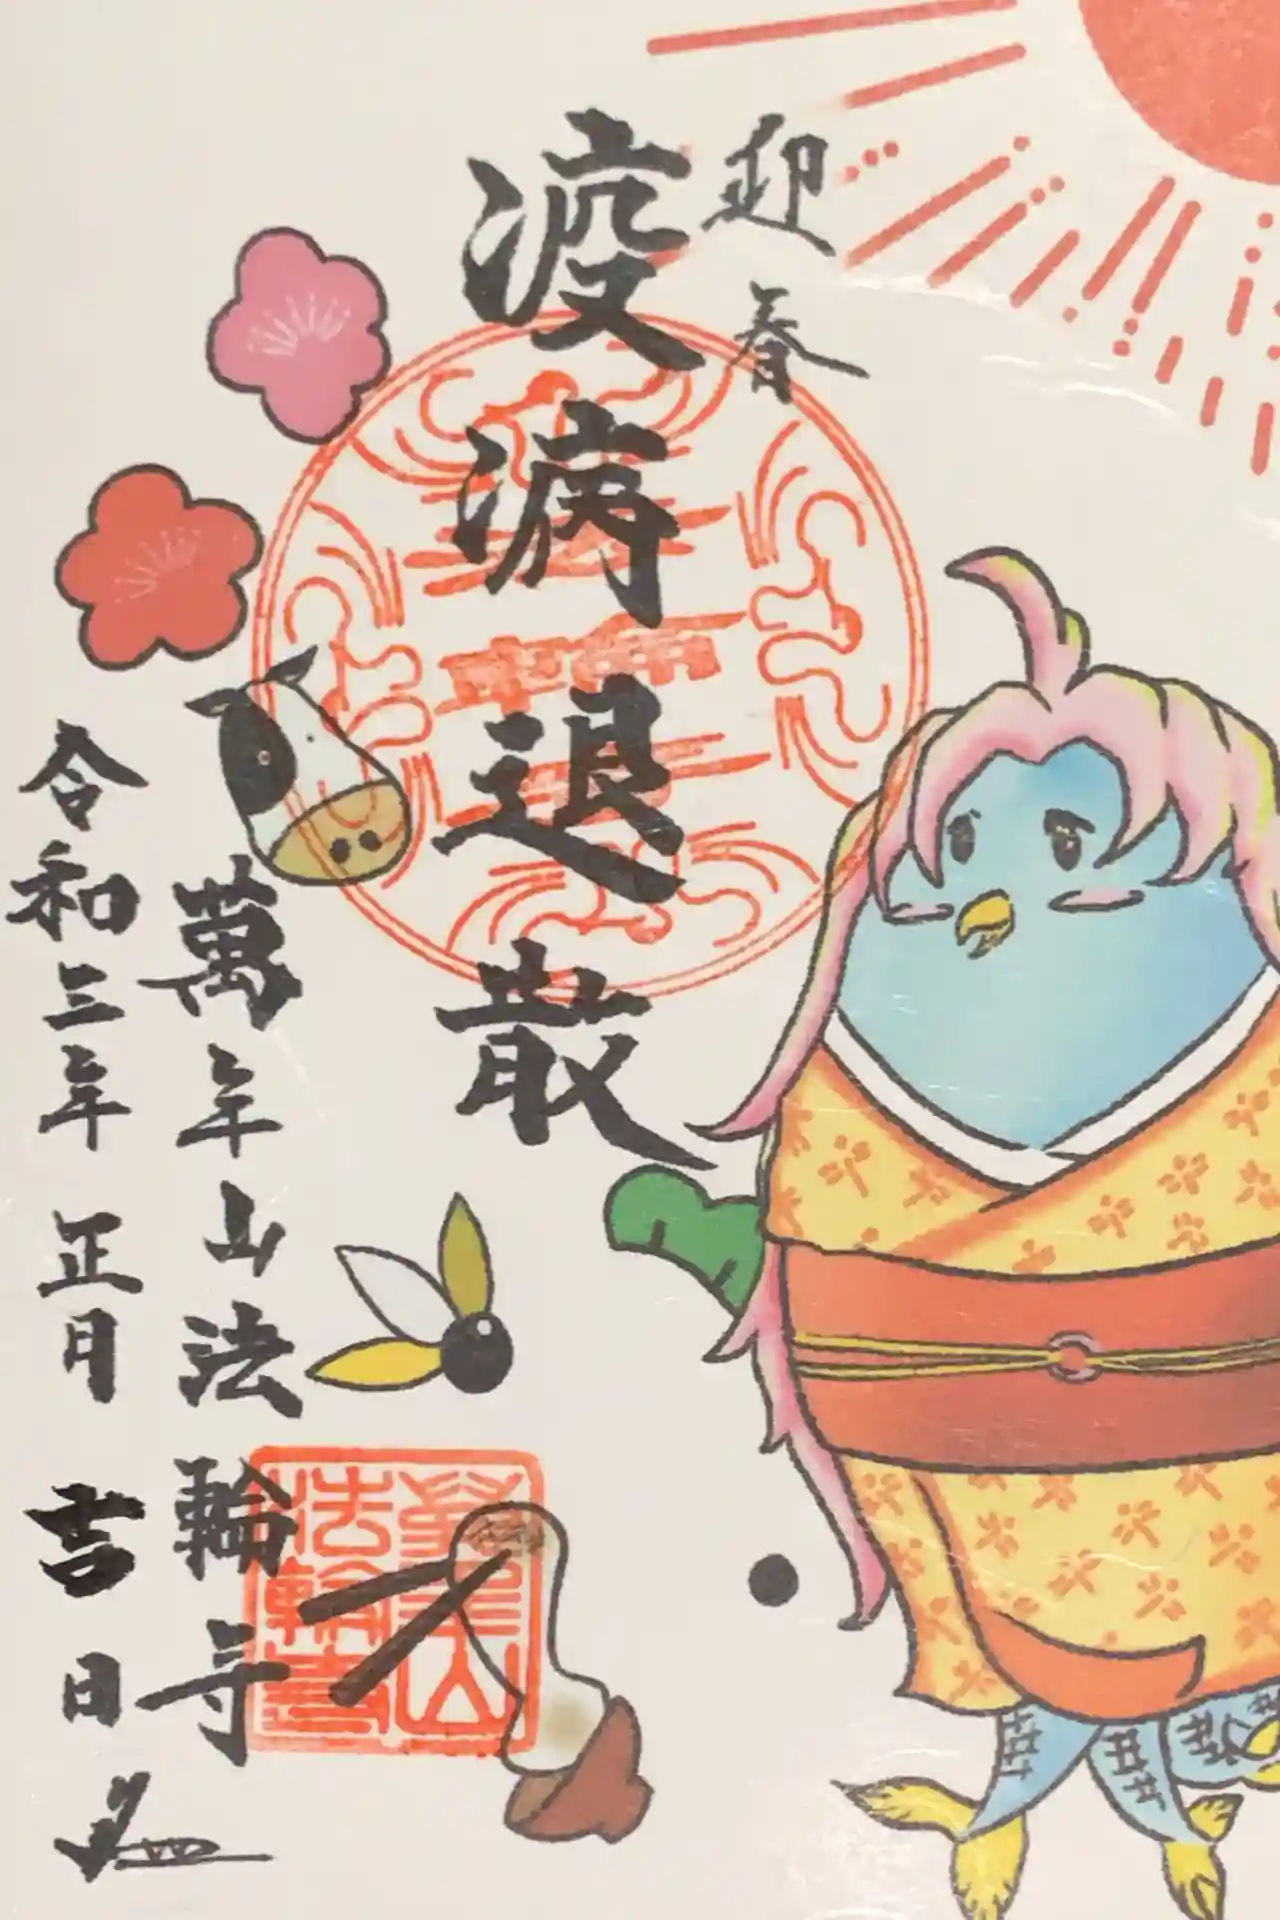 迎春
疫病退散
萬年山法輪寺
令和三年 正月 吉日
萬年山
法輪寺